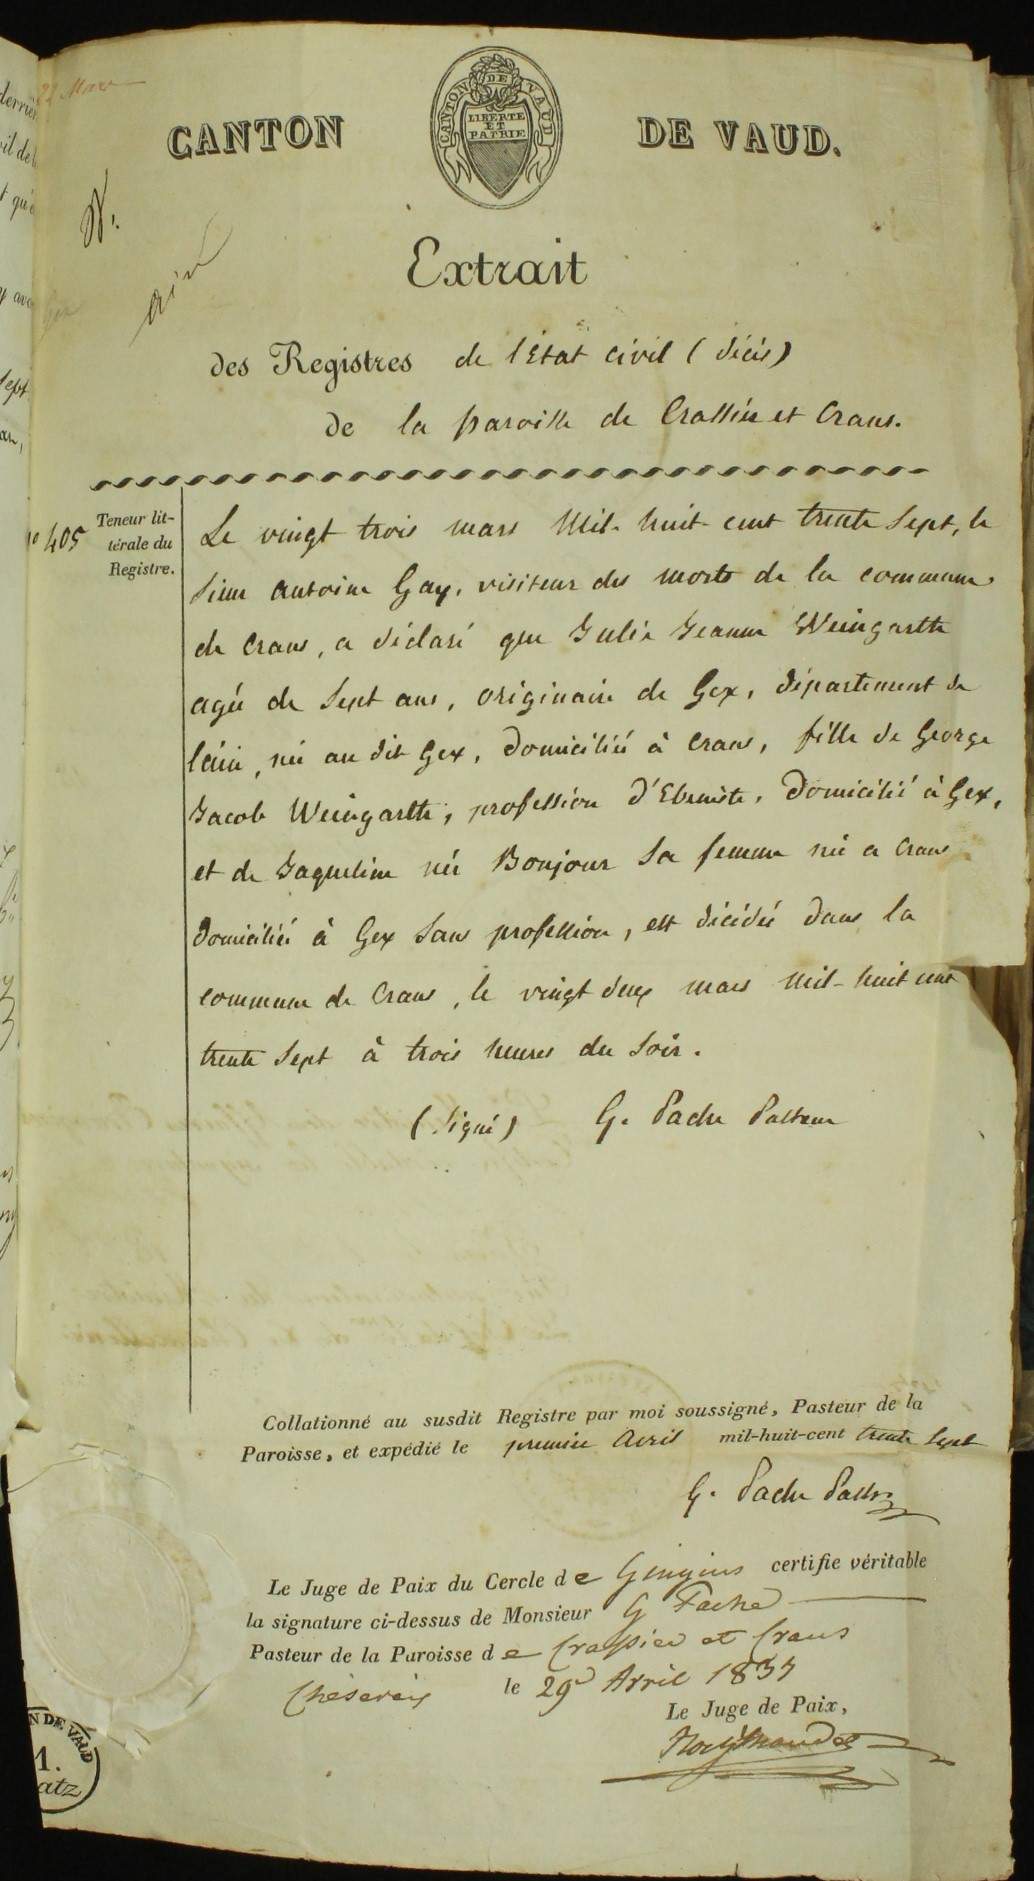 22 Mars
CANTON DE VAUD.
CANTON DE VAUD
LIBERTÉ
ET
PATRIE
N.
ain
Extrait
des Registres de l'État civil (décès)
de la paroisse de Crassier et Crans.
Teneur lit-
térale du
Registre.
no 405
Le vingt trois mars Mil-huit-cent trente Sept, le
Sieur Antoine Gay, visiteur des morts de la commune
de Crans, a déclaré que Julie Jeanne Weingartte
agée de Sept ans, originaire de Gex, département de
l'ain, née au dit Gex, domiciliée à Crans, fille de George
Jacob Weingartte, profession d'Ebeniste, domicilié à Gex,
et de Jaqueline née Bonjour Sa femme née a Crans
domiciliée à Gex Sans profession, est décédée dans la
commune de Crans, le vingt deux mars Mil-huit cent
trente Sept à trois heures du Soir.
(Signé) G. Pache Pasteur
Collationné au susdit Registre par moi soussigné, Pasteur de la
Paroisse, et expédié le premier Avril mil-huit-cent trente Sept
G. Pache Pastr
Le Juge de Paix du Cercle de Gingins certifie véritable
la signature ci-dessus de Monsieur G Pache
Pasteur de la Paroisse de Crassier et Crans
Chéserex le 29e Avril 1837
Le Juge de Paix,
N DE VAUD
1.
atz